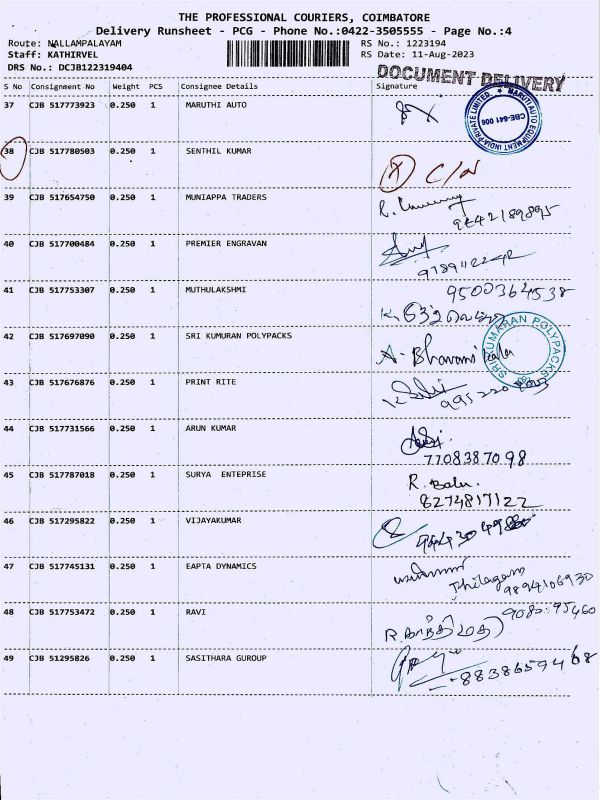 THE PROFESSIONAL COURIERS, COIMBATORE
Delivery Runsheet - PCG - Phone No.:0422-3505555 - Page No.:4
Route: NALLAMPALAYAM RS No.: 1223194
Staff: KATHIRVEL RS Date: 11-Aug-2023
DRS No.: DCJB122319404
DOCUMENT DELIVERY
S No Consignment No Weight PCS Consignee Details Signature
37 CJB 517773923 0.250 1 MARUTHI AUTO
MARUTI AUTO EQUIPMENT INDIA PRIVATE LIMITED
CBE-641 006
38 CJB 517780503 0.250 1 SENTHIL KUMAR
39 CJB 517654750 0.250 1 MUNIAPPA TRADERS
40 CJB 517700484 0.250 1 PREMIER ENGRAVAN
41 CJB 517753307 0.250 1 MUTHULAKSHMI 9500364538
42 CJB 517697090 0.250 1 SRI KUMURAN POLYPACKS A. Bhavani
SRI KUMARAN POLYPACKS
43 CJB 517676876 0.250 1 PRINT RITE
44 CJB 517731566 0.250 1 ARUN KUMAR
7708387098
45 CJB 517787018 0.250 1 SURYA ENTEPRISE R. Balu
8274817122
46 CJB 517295822 0.250 1 VIJAYAKUMAR
47 CJB 517745131 0.250 1 EAPTA DYNAMICS Thilagam
9894106930
48 CJB 517753472 0.250 1 RAVI
49 CJB 51295826 0.250 1 SASITHARA GUROUP
8838659468